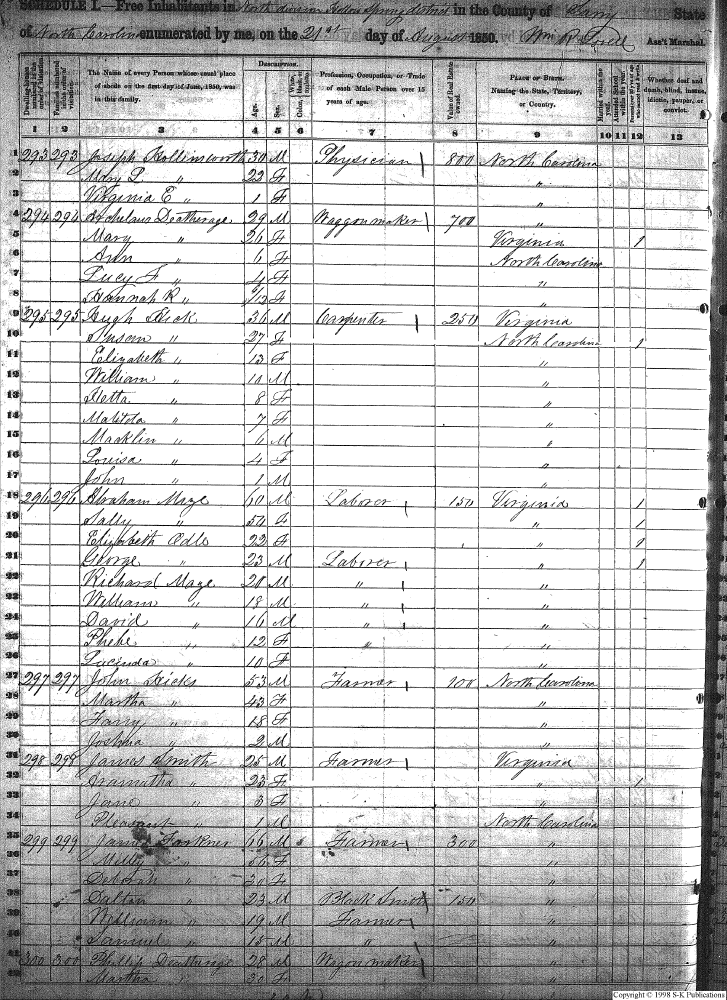 SCHEDULE I.—Free Inhabitants in North division Hollow Spring district in the County of Surry State
of North Carolina enumerated by me, on the 21st day of August 1850. Wm R Lovell Ass't Marshal.
DESCRIPTION.
The Name of every Person whose usual place of abode on the first day of June, 1850, was in this family.
Age.
Sex.
Profession, Occupation, or Trade of each Male Person over 15 years of age.
Value of Real Estate owned.
PLACE OF BIRTH. Naming the State, Territory, or Country.
Whether deaf and dumb, blind, insane, idiotic, pauper, or convict.
1 2 3 4 5 6 7 8 9 10 11 12 13
1 293 293 Joseph Hollinsworth 30 M Physician 800 North Carolina
2 Mary L " 22 F "
3 Virginia E " 1 F "
4 294 294 Archelaus Deatherage 29 M Waggon maker 700 "
5 Mary " 26 F Virginia 1
6 Ann " 6 F North Carolina
7 Lucy F " 4 F "
8 Hannah R " /12 F "
9 295 295 Hugh 36 M Carpenter 250 Virginia
10 Susan " 27 F North Carolina 1
11 Elizabeth " 13 F "
12 William " 10 M "
13 8 F "
14 Matilda " 7 F "
15 Macklin " 6 M "
16 Louisa " 4 F "
17 John " 1 M "
18 296 296 Abraham Maze 60 M Laborer 150 Virginia 1
19 Sally " 54 F " 1
20 Elizabeth Odle 22 F " 1
21 George " 23 M Laborer " 1
22 Richard Maze 20 M " "
23 William " 18 M " "
24 David " 16 M " "
25 Phebe " 12 F " "
26 Lucinda " 10 F "
27 297 297 John Hicks 53 M Farmer 100 North Carolina
28 Martha " 43 F "
29 " 18 F "
30 Joshua " 2 M "
31 298 298 James Smith 25 M Farmer Virginia
32 " 23 F " 1
33 Jane " 3 F "
34 Pleasant " 1 M North Carolina
35 299 299 James Forkner 66 M Farmer 300 "
36 Milly " 56 F "
37 Deborah " 30 F "
38 Dalton " 23 M Black Smith 150 "
39 William " 19 M Farmer "
40 Samuel " 15 M " "
41 300 300 Phillip Deatherage 28 M Wagon maker "
42 Martha " 30 F "
Copyright © 1998 S-K Publications